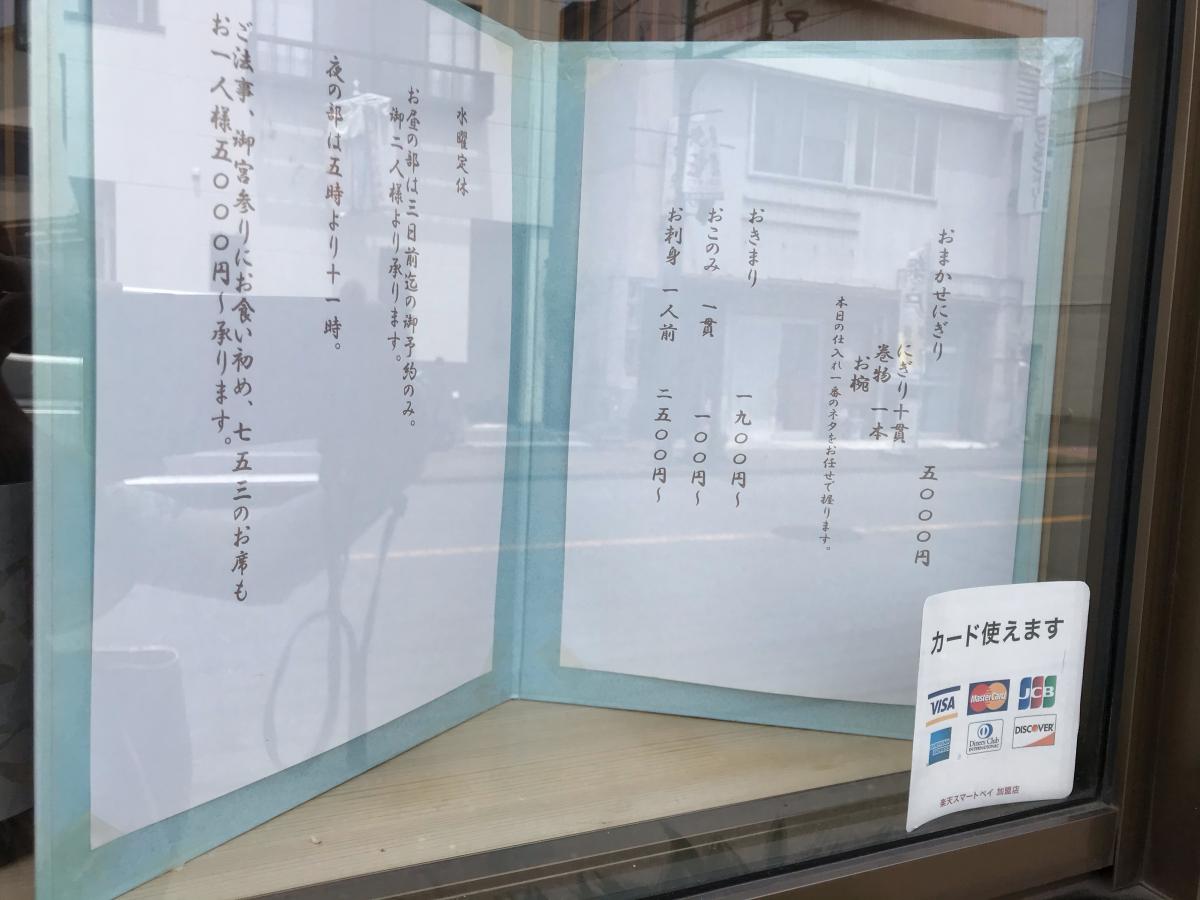 おまかせにぎり
にぎり十貫 五〇〇〇円
巻物 一本
お椀
本日の仕入れ一番のネタをお任せで握ります。
おきまり 一九〇〇円～
おこのみ 一貫 一〇〇円～
お刺身 一人前 二五〇〇円～
水曜定休
お昼の部は三日前迄の御予約のみ。
御二人様より承ります。
夜の部は五時より十一時。
ご法事、御宮参りにお食い初め、七五三のお席も
お一人様五〇〇〇円～承ります。
カード使えます
VISA MasterCard JCB
AMERICAN EXPRESS Diners Club INTERNATIONAL DISCOVER
楽天スマートペイ 加盟店